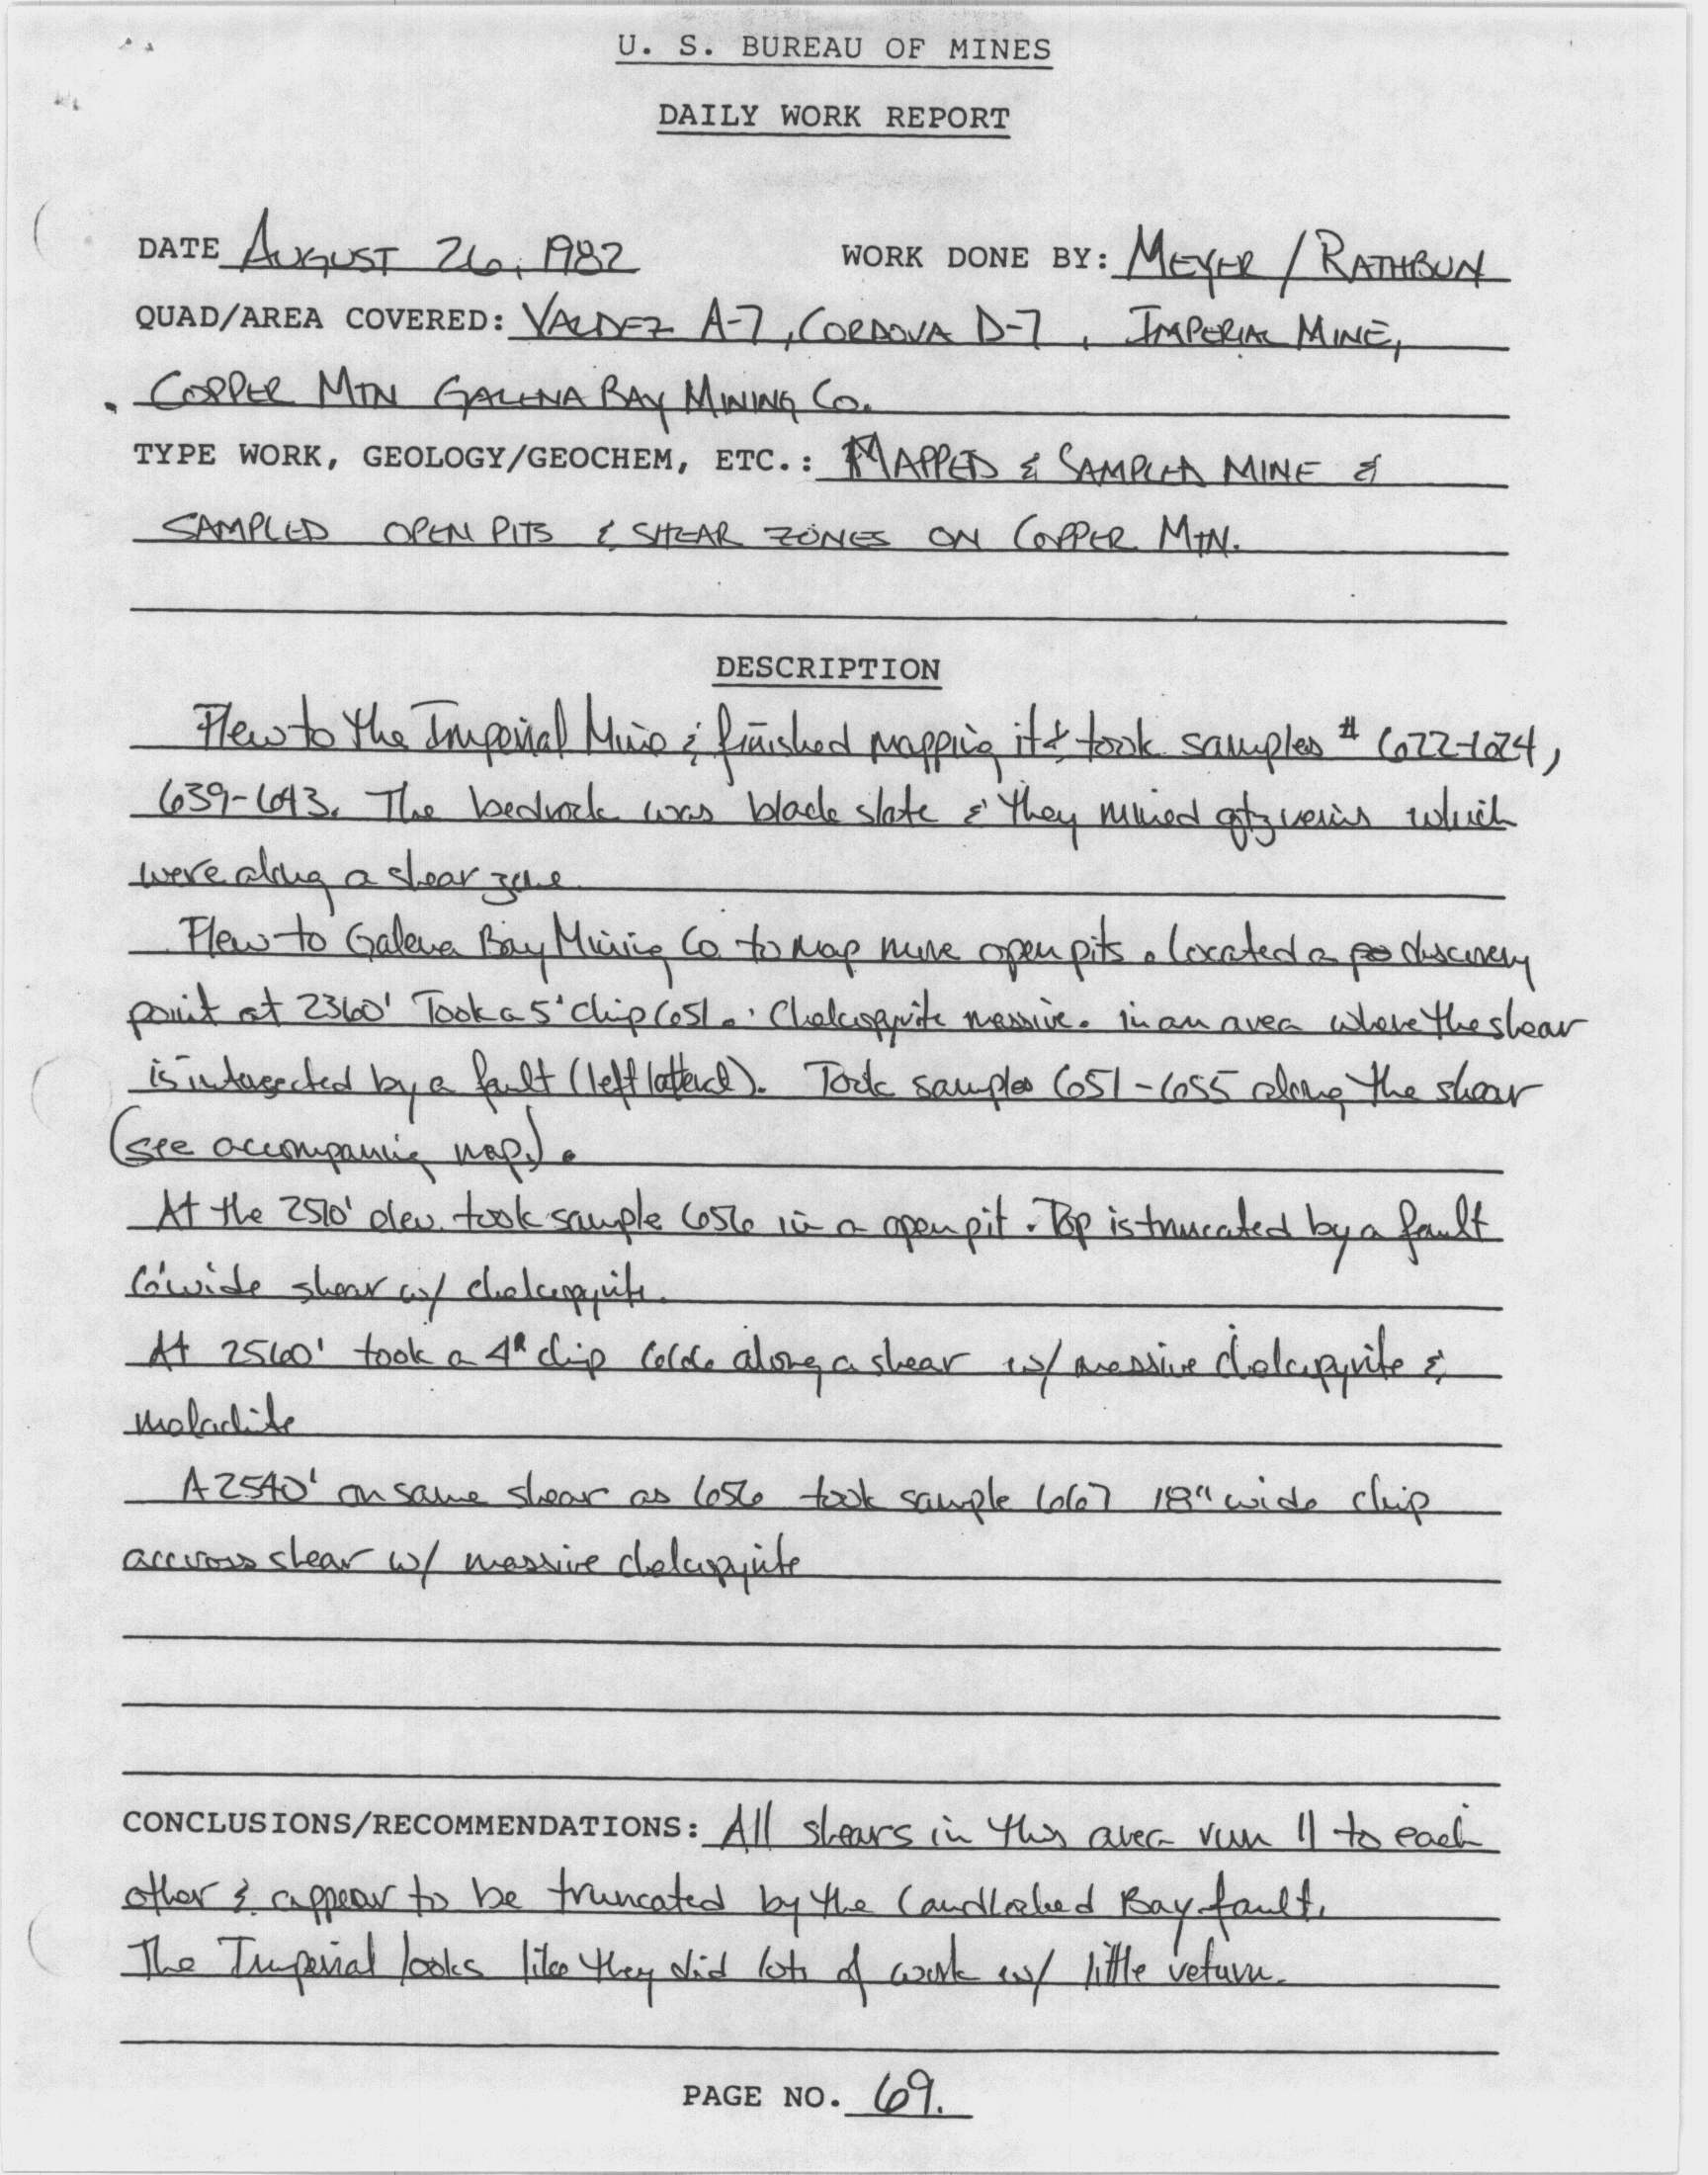 U. S. BUREAU OF MINES
DAILY WORK REPORT
DATE AUGUST 26, 1982 WORK DONE BY: MEYER / RATHBUN
QUAD/AREA COVERED: VALDEZ A-7, CORDOVA D-7, IMPERIAL MINE,
COPPER MTN GALENA BAY MINING CO.
TYPE WORK, GEOLOGY/GEOCHEM, ETC.: MAPPED & SAMPLED MINE &
SAMPLED OPEN PITS & SHEAR ZONES ON COPPER MTN.
DESCRIPTION
Flew to the Imperial Mine & finished mapping it & took samples # 622-624,
639-643. The bedrock was black slate & they mined qtz veins which
were along a shear zone
Flew to Galena Bay Mining Co to map more open pits. Located a discovery
point at 2360' Took a 5' chip 651. Chalcopyrite massive. in an area where the shear
is intersected by a fault (left latteral). Took samples 651-655 along the shear
(see accompaning map).
At the 2510' elev. took sample 656 in a open pit. Top is truncated by a fault
6' wide shear w/ chalcopyrite.
At 2560' took a 4' chip 666 along a shear w/ massive chalcopyrite &
malachite
A 2540' on same shear as 656 took sample 667 18" wide chip
accross shear w/ massive chalcopyrite
CONCLUSIONS/RECOMMENDATIONS: All shears in this area run || to each
other & appear to be truncated by the Landlocked Bay fault.
The Imperial looks like they did lots of work w/ little return.
PAGE NO. 69.